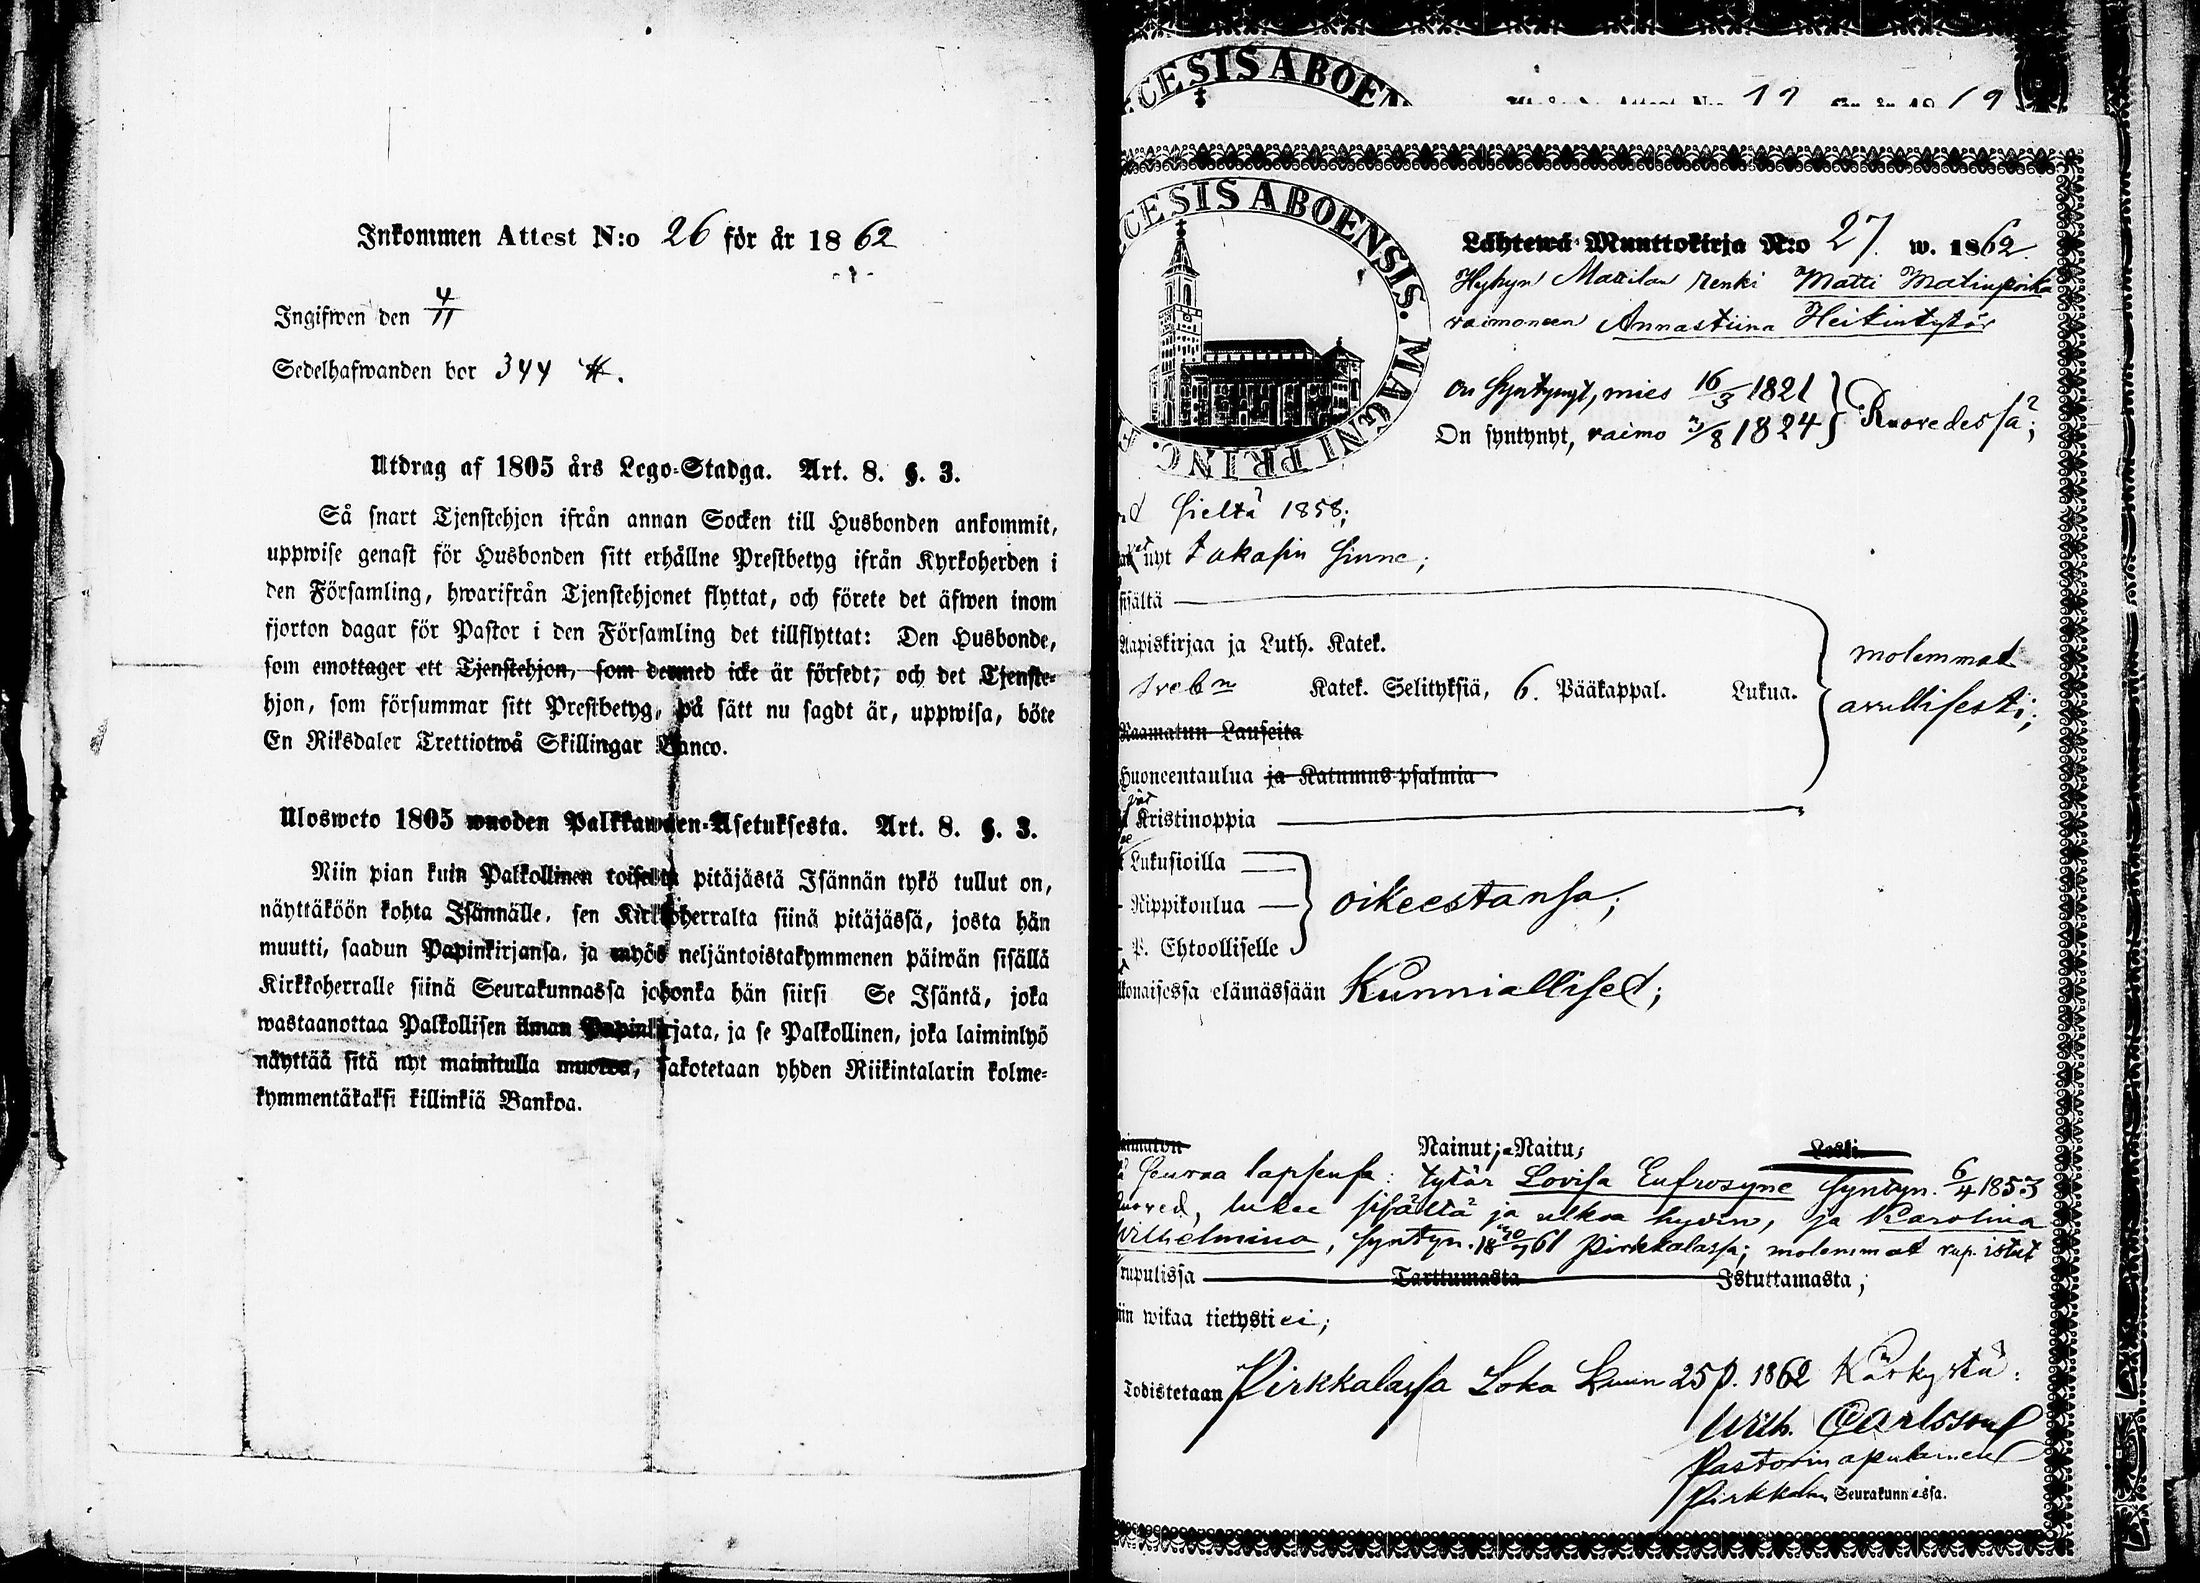 Inkommen Attest N:o 26 för år 1862
Ingifwen den 4/11
Sedelhafwanden bor 344
Utdrag af 1805 års Lego-Stadga. Art. 8. §. 3.
Så snart Tjenstehjon ifrån annan Socken till Husbonden ankommit,
uppwise genast för Husbonden sitt erhållne Prestbetyg ifrån Kyrkoherden i
den Församling, hwarifrån Tjenstehjonet flyttat, och förete det äfwen inom
fjorton dagar för Pastor i den Församling det tillflyttat: Den Husbonde,
som emottager ett Tjenstehjon, som dermed icke är försedt, och det Tjenste-
hjon, som försummar sitt Prestbetyg, på sätt nu sagdt är, uppwisa, böte
En Riksdaler Trettiotwå Skillingar Banco.
Ulosweto 1805 wuoden Palkkawäen-Asetuksesta. Art. 8. §. 3.
Niin pian kuin Palkollinen toisesta pitäjästä Isännän tykö tullut on,
näyttäköön kohta Isännälle, sen Kirkkoherralta siinä pitäjässä, josta hän
muutti, saadun Papinkirjansa, ja myös neljäntoistakymmenen päiwän sisällä
Kirkkoherralle siinä Seurakunnassa johonka hän siirsi Se Isäntä, joka
wastaanottaa Palkollisen ilman Papinkirjata, ja se Palkollinen, joka laiminlyö
näyttää sitä nyt mainitulla muotoa, sakotetaan yhden Riikintalarin kolme-
kymmentäkaksi killinkiä Bankoa.
CESIS ABOEN
12 19
CESIS ABOENSIS. MAGNI PRINC.
Lähtewä Muuttokirja N:o 27. w. 1862.
Hyhyn Mattilan renki Matti Matinpoika
vaimoneen Annastiina Heikintytär
on syntynyt, mies 16/3 1821
On syntynyt, vaimo /8 1824 } Ruovedessä;
sieltä 1858;
nyt takasin sinne;
sisältä
Aapiskirjaa ja Luth. Katek.
Sveb Katek. Selityksiä, 6. Pääkappal. Lukua. molemmat avullisesti;
Raamatun Lauseita
Huoneentaulua ja Katumus-psalmia
Kristinoppia
Lukusioilla
Rippikoulua oikeestansa;
P. Ehtoolliselle
elämässään Kunnialliset;
Nainut; Naitu; Leski
seuraa lapsensa: tytär Lovisa Eufrosyne syntyn. 6/4 1853
lukee sisältä ja ulkoa hyvin, ja Karolina
Wilhelmina, syntyn. 61 Pirkkalassa; molemmat rup. istut
rupulissa Tarttumasta Istuttamasta;
wikaa tietysti ei;
Todistetaan Pirkkalassa Loka Kuun 25 p. 1862
Wilh. Carlsson
Pastorin apulainen
Pirkkalan Seurakunnassa.